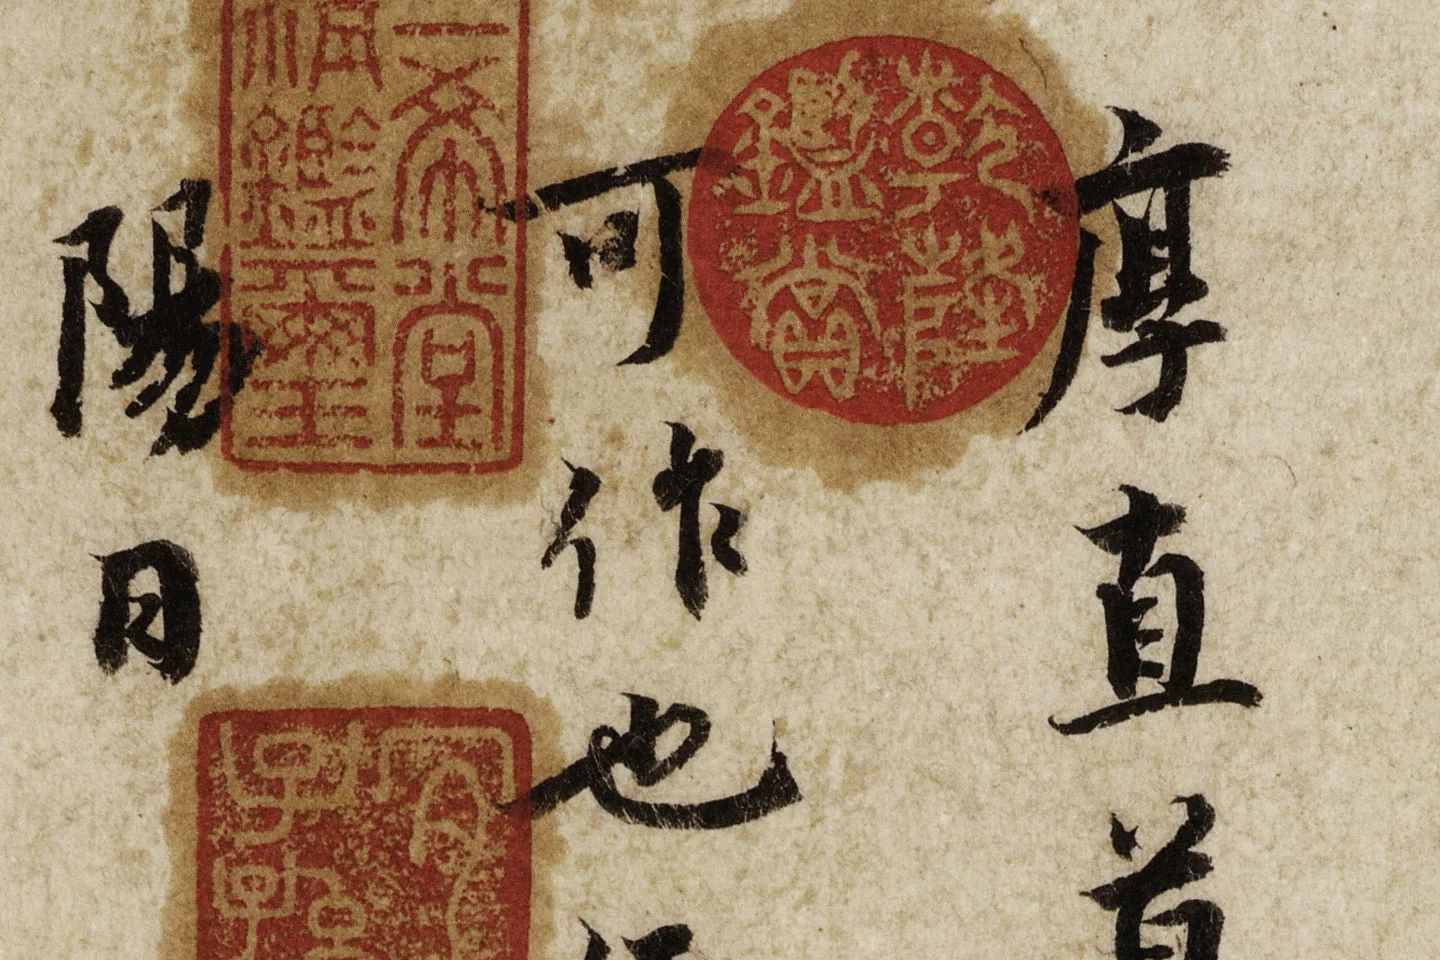 厚直首
乾隆鑑賞
可作也
三希堂精鑑璽
宜子孫
陽日